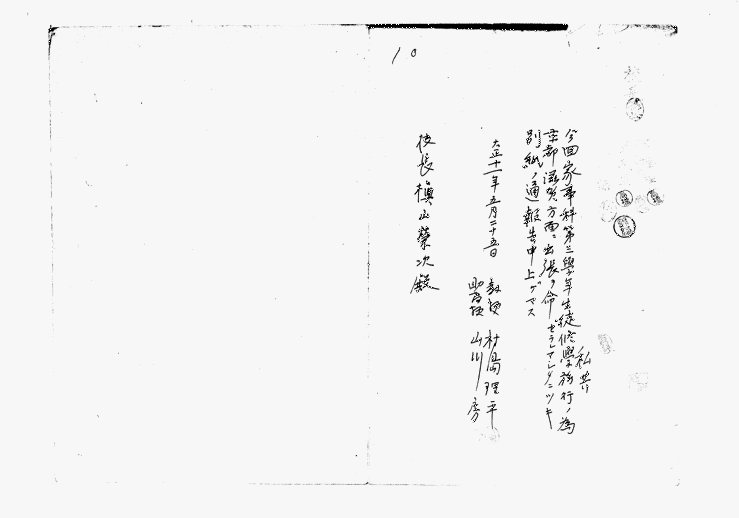 10
私共
今回家事科第三學年生徒修學旅行ノ為
京都滋賀方面ニ出張ヲ命ゼラレマシタニツキ
別紙ノ通報告申上ゲマス
大正十一年五月二十五日
教授 村島理平
助教授 山川房
校長槙山榮次殿